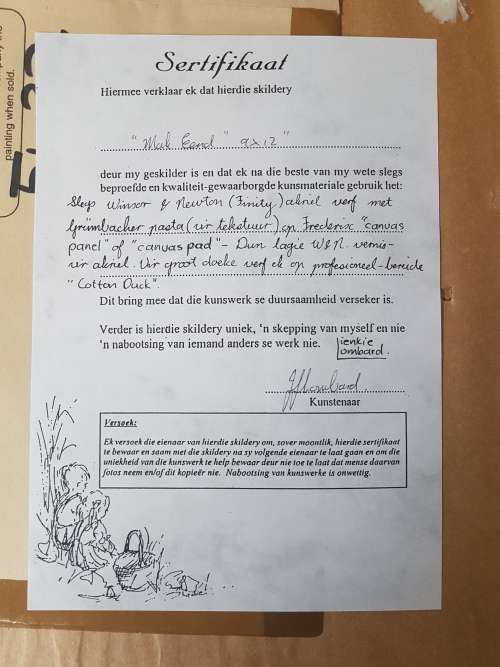 painting when sold.
Sertifikaat
Hiermee verklaar ek dat hierdie skildery
"Mak Eend" 9x12"
deur my geskilder is en dat ek na die beste van my wete slegs
beproefde en kwaliteit-gewaarborgde kunsmateriale gebruik het:
Slegs Winsor & Newton (Finity) akriel verf met
Grümbacher pasta (vir tekstuur) op Frederix "canvas
panel" of "canvas pad" - Dun lagie W&N. vernis-
vir akriel. Vir groot doeke verf ek op profesioneel-bereide
"Cotton Duck".
Dit bring mee dat die kunswerk se duursaamheid verseker is.
Verder is hierdie skildery uniek, 'n skepping van myself en nie
'n nabootsing van iemand anders se werk nie.
lienkie
lombard.
Kunstenaar
Versoek:
Ek versoek die eienaar van hierdie skildery om, sover moontlik, hierdie sertifikaat
te bewaar en saam met die skildery na sy volgende eienaar te laat gaan en om die
uniekheid van die kunswerk te help bewaar deur nie toe te laat dat mense daarvan
fotos neem en/of dit kopieër nie. Nabootsing van kunswerke is onwettig.